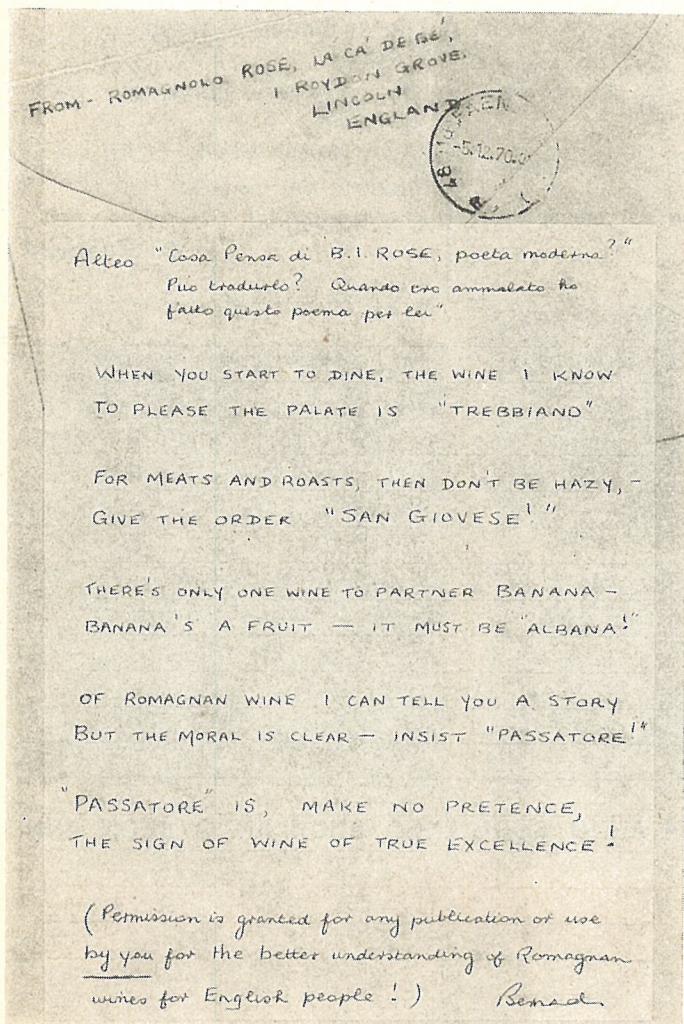 FROM - ROMAGNOLO ROSE, LA CA' DE BE',
1 ROYDON GROVE.
LINCOLN
ENGLAND
-5.12.70.
48
Alteo "Cosa Pensa di B.I. ROSE, poeta moderna?"
Puo tradurlo? Quando ero ammalato ho
fatto questo poema per lei"
WHEN YOU START TO DINE, THE WINE I KNOW
TO PLEASE THE PALATE IS "TREBBIANO"
FOR MEATS AND ROASTS, THEN DON'T BE HAZY, -
GIVE THE ORDER "SAN GIOVESE!"
THERE'S ONLY ONE WINE TO PARTNER BANANA -
BANANA'S A FRUIT - IT MUST BE "ALBANA!"
OF ROMAGNAN WINE I CAN TELL YOU A STORY
BUT THE MORAL IS CLEAR - INSIST "PASSATORE!"
"PASSATORE" IS, MAKE NO PRETENCE,
THE SIGN OF WINE OF TRUE EXCELLENCE!
(Permission is granted for any publication or use
by you for the better understanding of Romagnan
wines for English people!) Bernard.